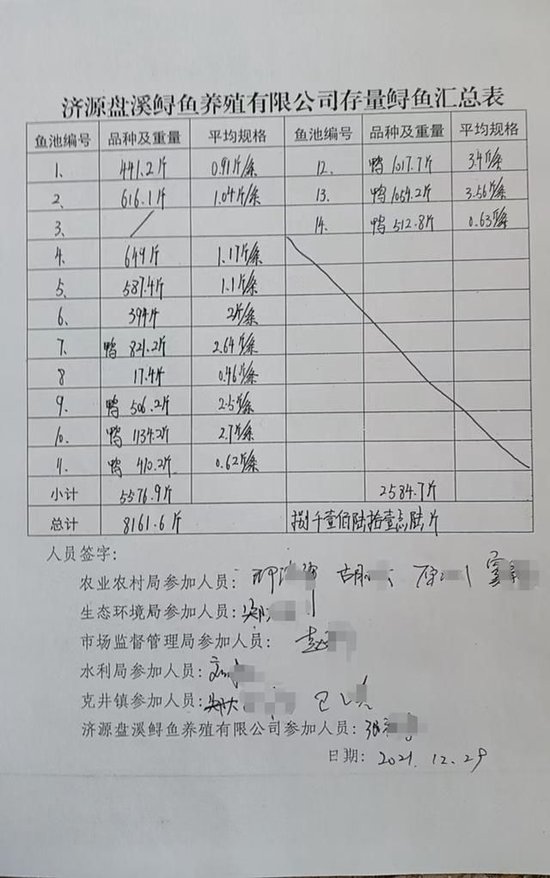 济源盘溪鲟鱼养殖有限公司存量鲟鱼汇总表
鱼池编号 品种及重量 平均规格 鱼池编号 品种及重量 平均规格
1. 441.2斤 0.91斤/条 12. 鸭 1017.7斤 3.4斤/条
2. 616.1斤 1.04斤/条 13. 鸭 1054.2斤 3.56斤/条
3. 14. 鸭 512.8斤 0.63斤/条
4. 649斤 1.17斤/条
5. 587.4斤 1.1斤/条
6. 394斤 2斤/条
7. 鸭 821.2斤 2.64斤/条
8 17.4斤 0.46斤/条
9. 鸭 506.2斤 2.5斤/条
10. 鸭 1134.2斤 2.7斤/条
11. 鸭 410.2斤 0.62斤/条
小计 5576.9斤 2584.7斤
总计 8161.6斤 捌千壹佰陆拾壹点陆斤
人员签字:
农业农村局参加人员: 胡
生态环境局参加人员:
市场监督管理局参加人员: 赵
水利局参加人员:
克井镇参加人员:
济源盘溪鲟鱼养殖有限公司参加人员: 张
日期: 2021.12.29